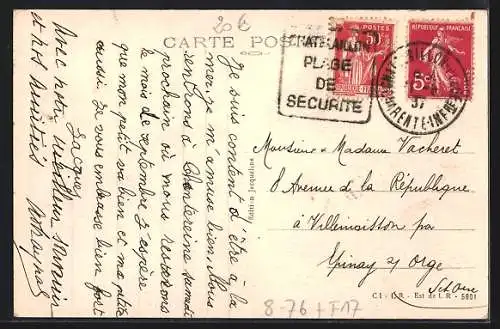 20 €
CARTE POSTALE
CHATELAILLON
PLAGE
DE
SECURITE
POSTES
50
REPUBLIQUE FRANÇAISE
5c
37
CHARENTE-INFRE
Je suis content d'être à la
mer, je m'amuse bien. Nous
rentrons à Chantereine samedi
prochain où nous resterons
le mois de septembre. J'espère
que mon petit va bien et ma petite
aussi. Je vous embrasse bien fort
Jacques
Avec nos meilleurs souvenirs
et nos amitiés
Monsieur & Madame Vacheret
8 Avenue de la République
à Villemoisson par
Epinay s/ Orge
S et Oise
C.I. - L.R. - Est de L.R - 5801
8-76 + T 17